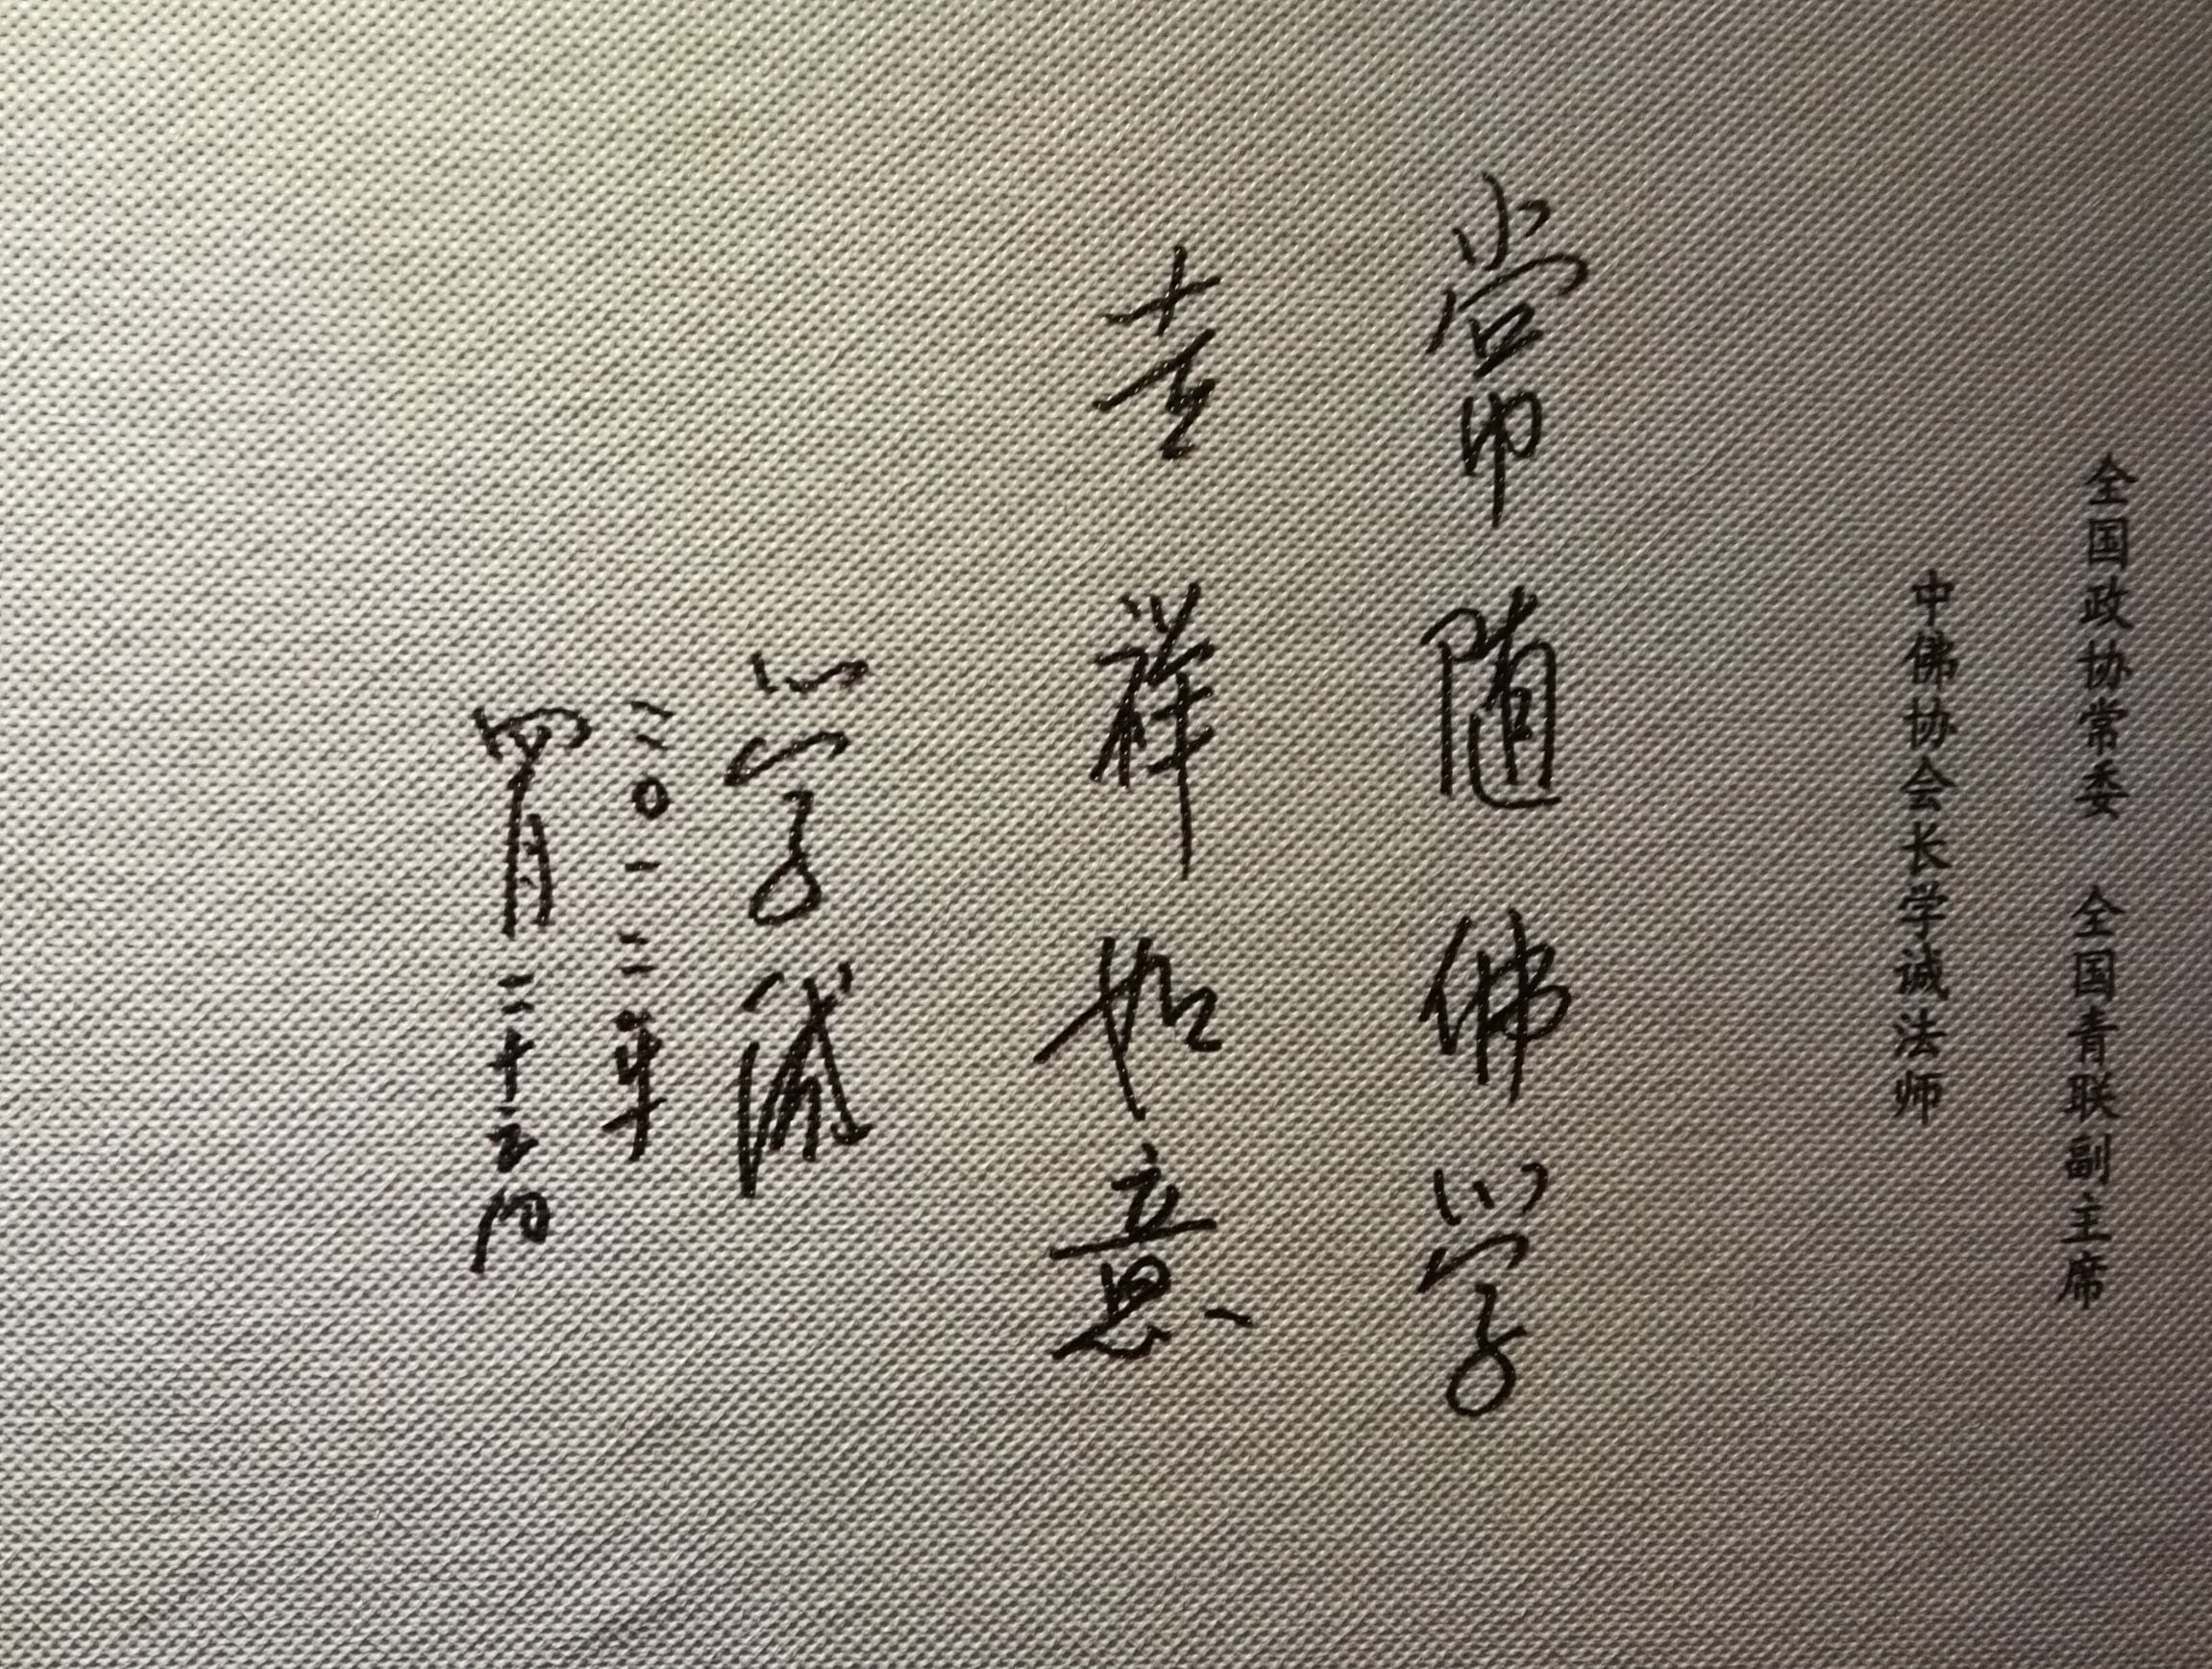 全国政协常委 全国青联副主席
中佛协会长学诚法师
常随佛学
吉祥如意
学诚
二〇一二年
四月二十五日